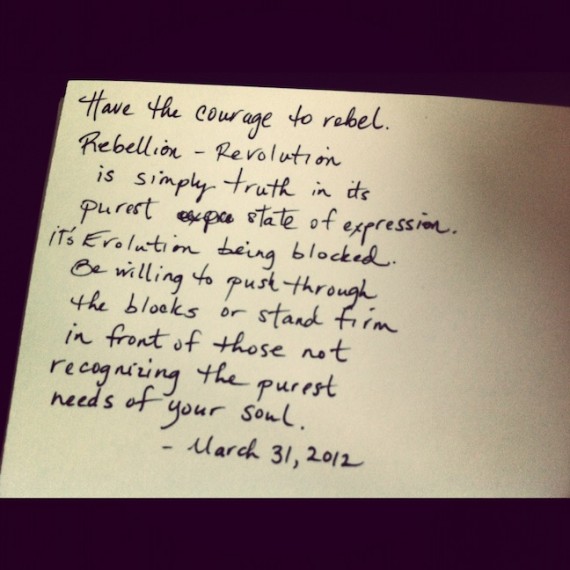 Have the courage to rebel.
Rebellion - Revolution
is simply truth in its
purest state of expression.
it's Evolution being blocked.
Be willing to push through
the blocks or stand firm
in front of those not
recognizing the purest
needs of your soul.
- March 31, 2012